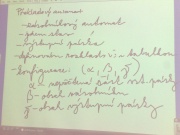 Překladový automat
– zásobníkový automat
– jeden stav
– výstupní páska
– řízen rozkladovou tabulkou
– konfigurace (α, β, γ)
α – nepřečtená část vst. pásky
β – obsah zásobníku
γ – obsah výstupní pásky